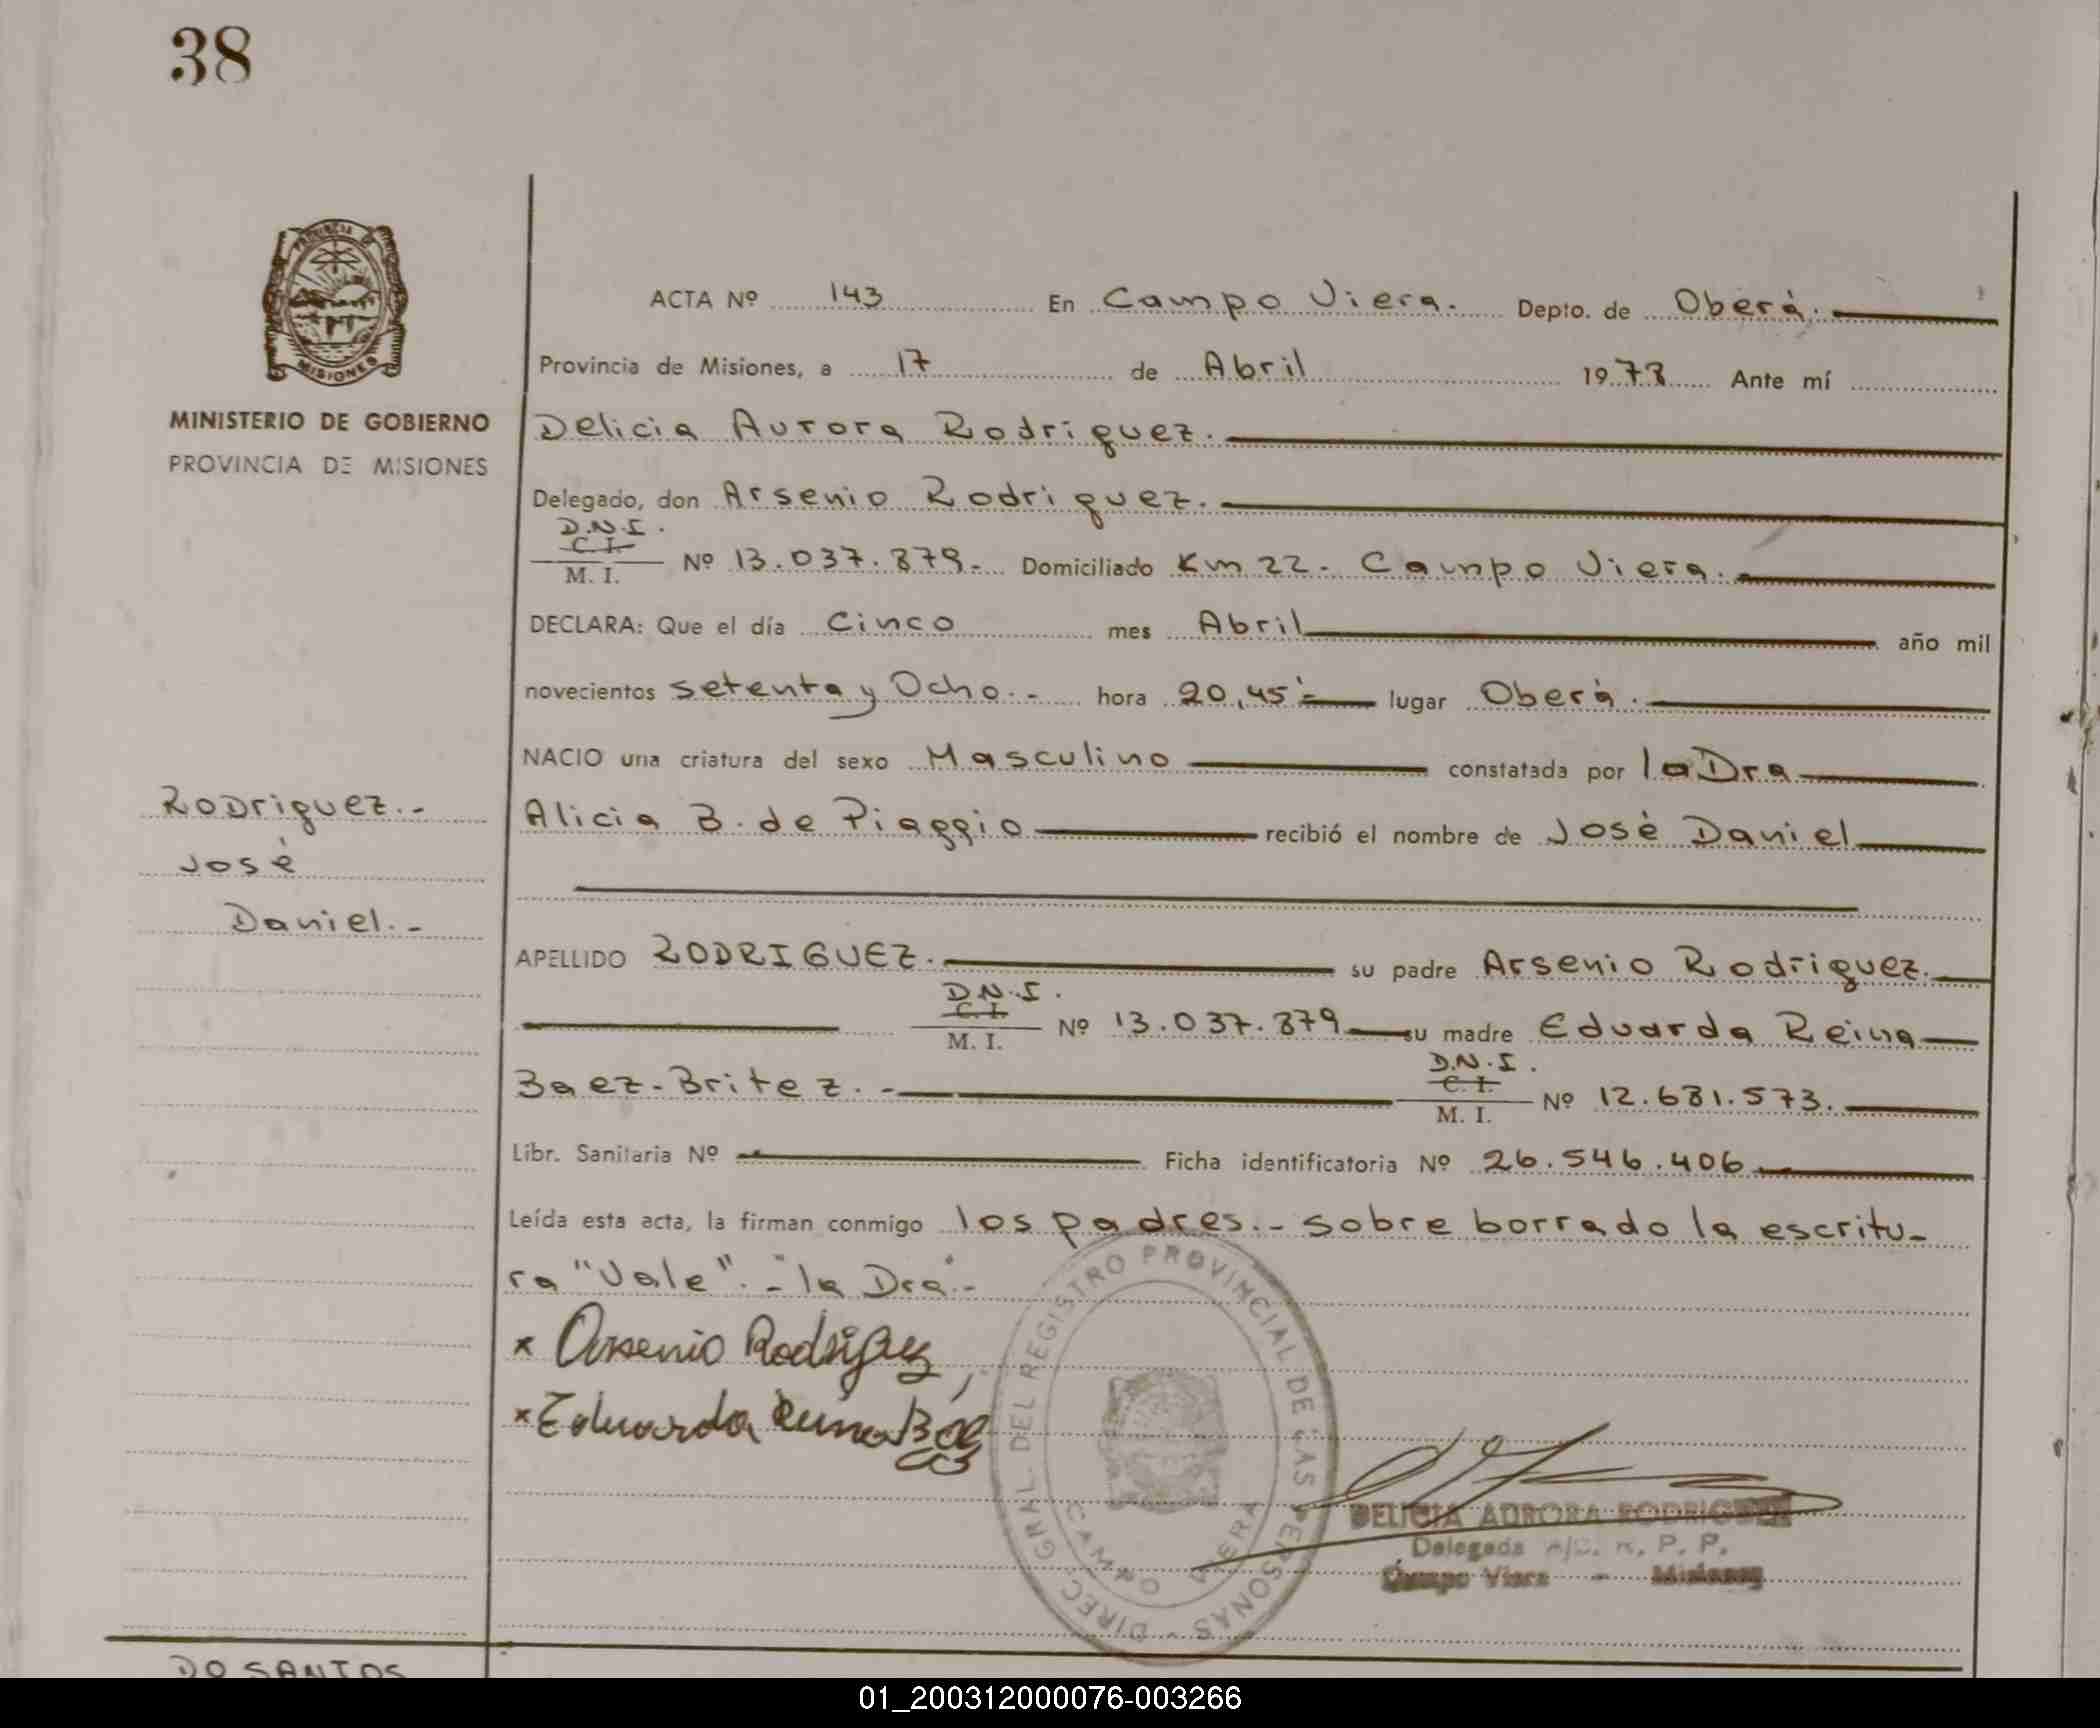 38
PROVINCIA DE
MISIONES
MINISTERIO DE GOBIERNO
PROVINCIA DE MISIONES
ACTA Nº 143 En Campo Viera. Depto. de Oberá.
Provincia de Misiones, a 17 de Abril 1978 Ante mí
Delicia Aurora Rodriguez.
Delegado, don Arsenio Rodriguez.
D.N.I.
C. I.
M. I. Nº 13.037.879.- Domiciliado Km 22. Campo Viera.
DECLARA: Que el día Cinco mes Abril año mil
novecientos setenta y Ocho.- hora 20,45'= lugar Oberá.
NACIO una criatura del sexo Masculino constatada por la Dra
Alicia B. de Piaggio recibió el nombre de José Daniel
Rodriguez.-
José
Daniel.-
APELLIDO RODRIGUEZ. su padre Arsenio Rodriguez.
D.N.I.
C. I.
M. I. Nº 13.037.879 su madre Eduarda Reina
Baez-Britez.-
D.N.I.
C. I.
M. I. Nº 12.681.573.
Libr. Sanitaria Nº Ficha identificatoria Nº 26.546.406
Leída esta acta, la firman conmigo los padres.- sobre borrado la escritu-
ra "Vale".- "la Dra".-
x Arsenio Rodriguez
x Eduarda Reina Baez
DIREC. GRAL. DEL REGISTRO PROVINCIAL DE LAS PERSONAS -
CAMPO VIERA
DELICIA AURORA RODRIGUEZ
Delegada A/C. R. P. P.
Campo Viera - Misiones
DO SANTOS
01_200312000076-003266